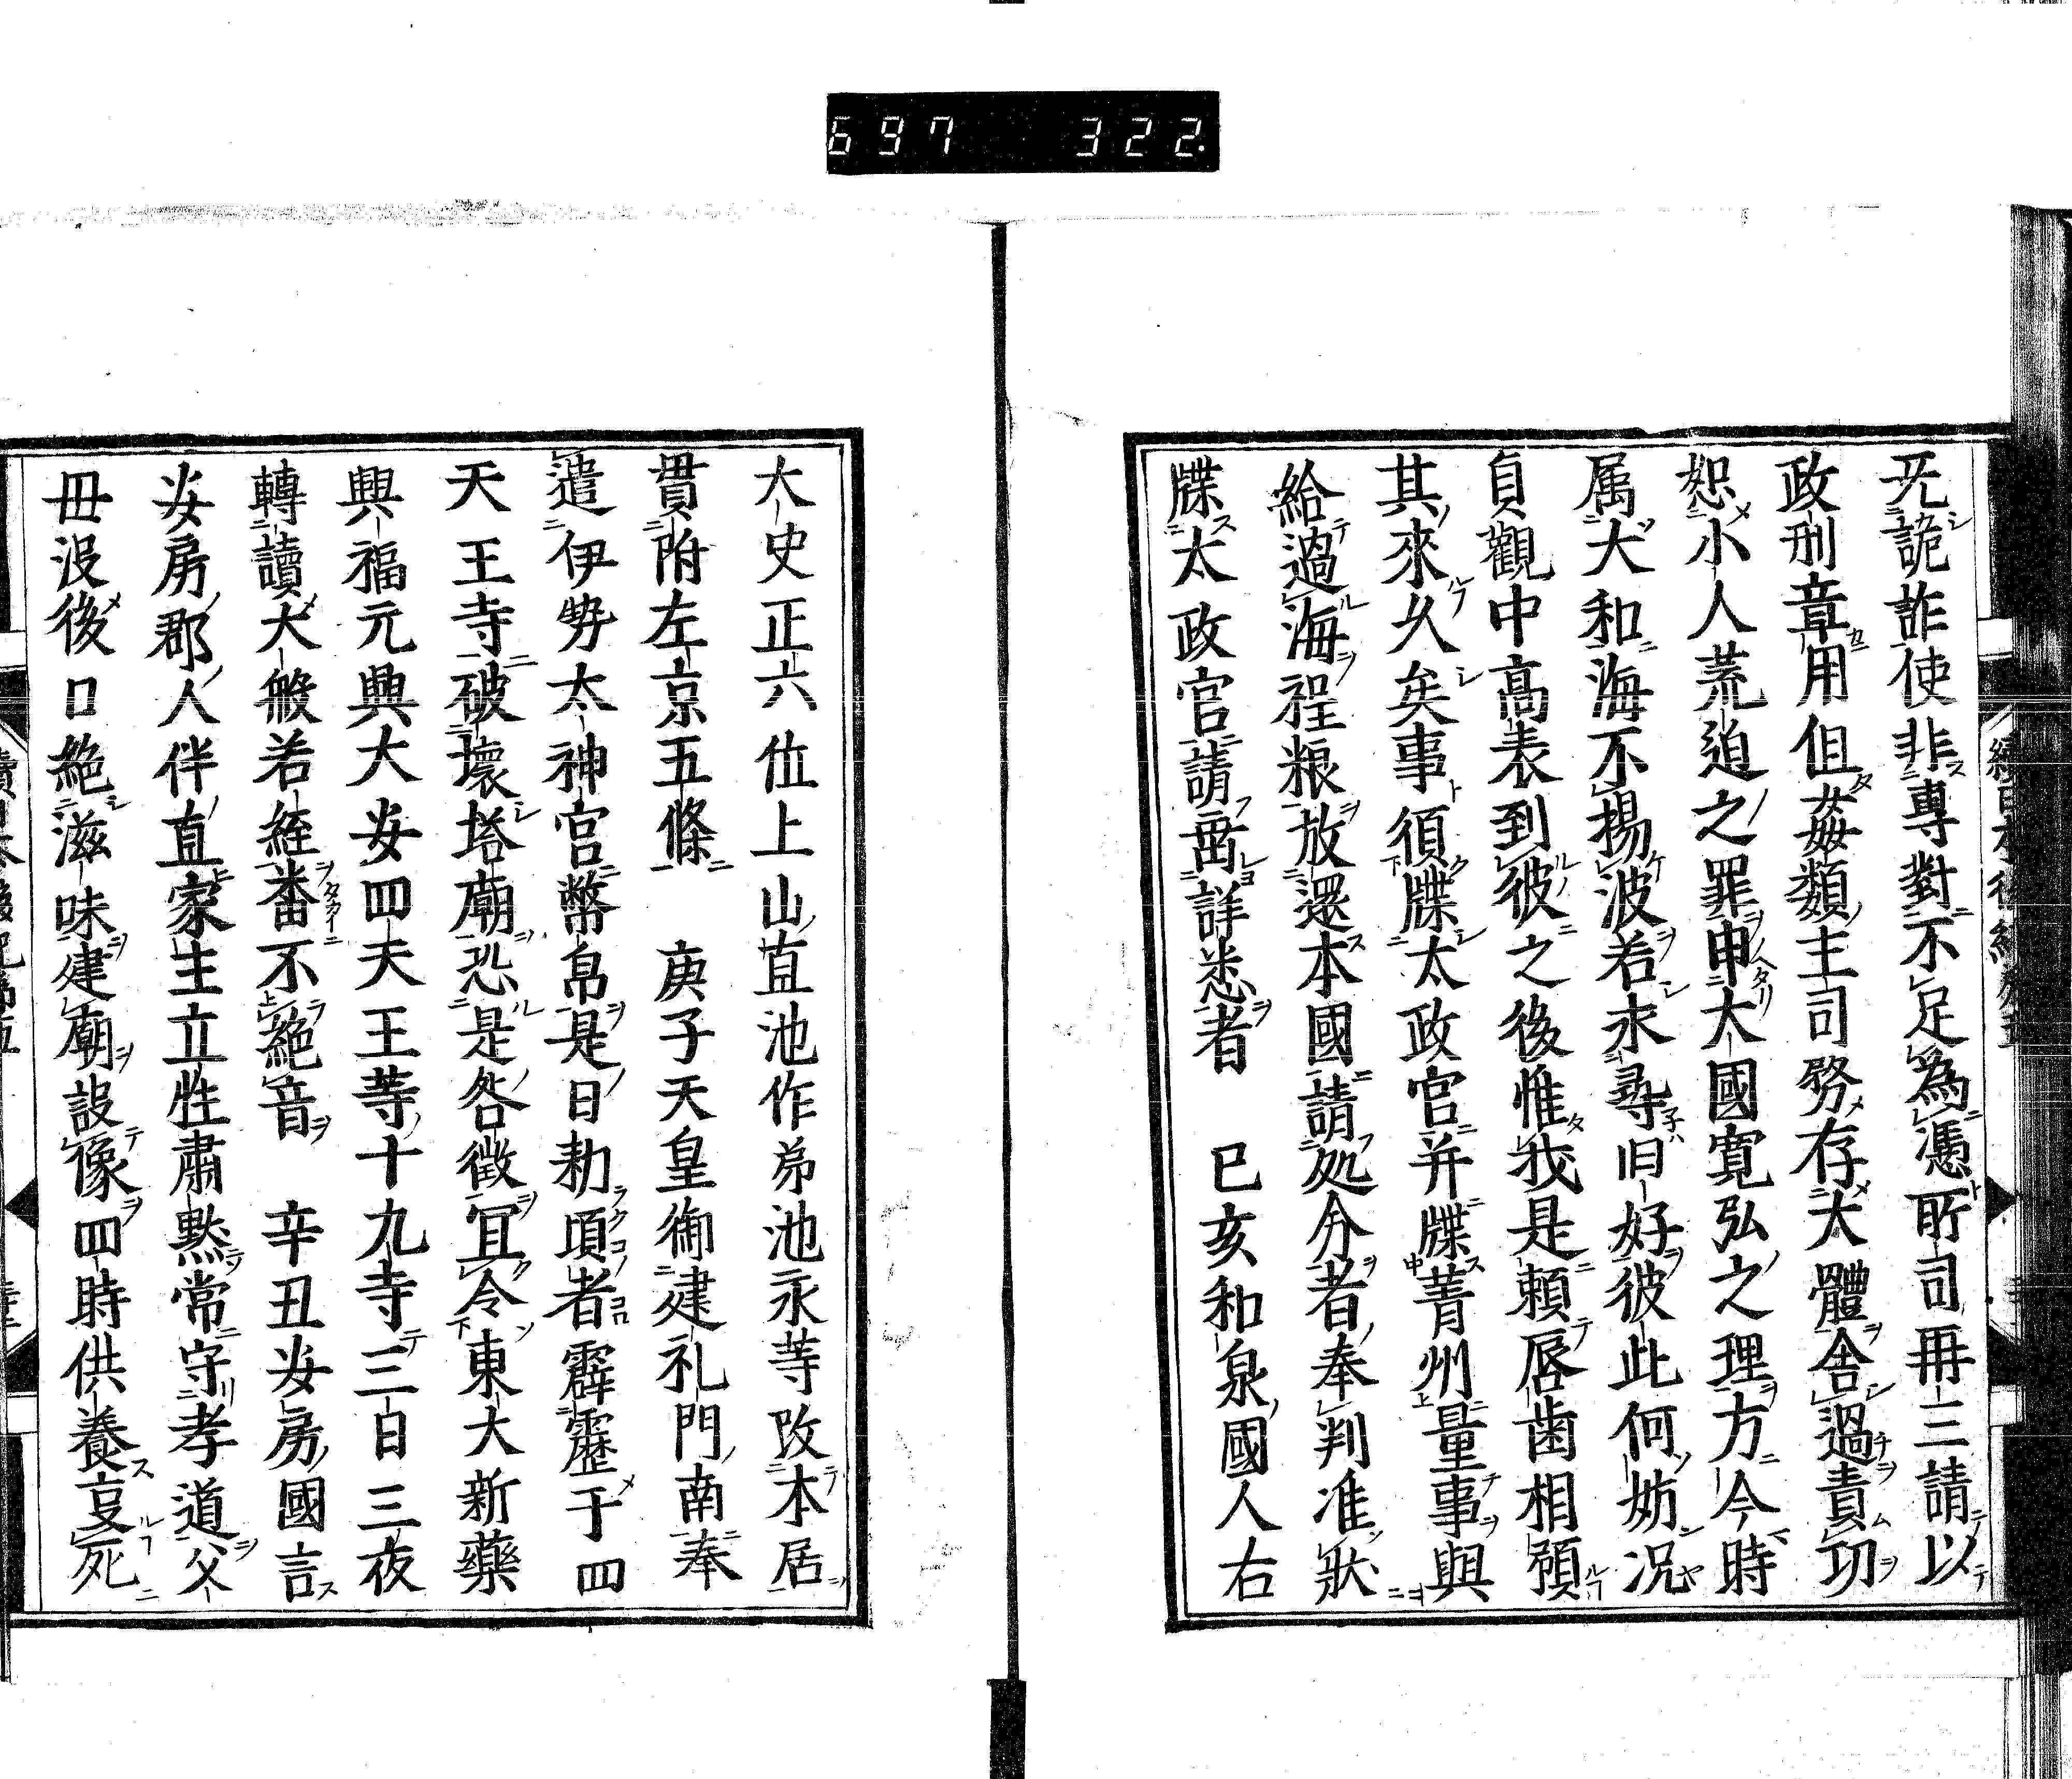 697 322
旡詭詐使非專對不足為憑所司再三請以
政刑章用但姦類主司務存大體舎過責功
恕小人荒迫之罪申大國寛弘之理方今時
属大和海不揚波若求尋旧好彼此何妨况
貞觀中高表到彼之後惟我是頼唇歯相須
其來久矣事須牒太政官并牒菁州量事與
給過海程粮放還本國請処分者奉判准狀
牒太政官請垂詳悉者 已亥和泉國人右
大史正六位上山直池作弟池永等改本居
貫附左京五條 庚子天皇御建礼門南奉
遣伊勢太神宮幣帛是日勅頃者霹靂于四
天王寺破壞塔廟恐是咎徴冝令東大新藥
興福元興大安四天王等十九寺三日三夜
轉讀大般若經番不絶音 辛丑安房國言
安房郡人伴直家主立性肅黙常守孝道父
毋没後口絶滋味建廟設像四時供養亨死